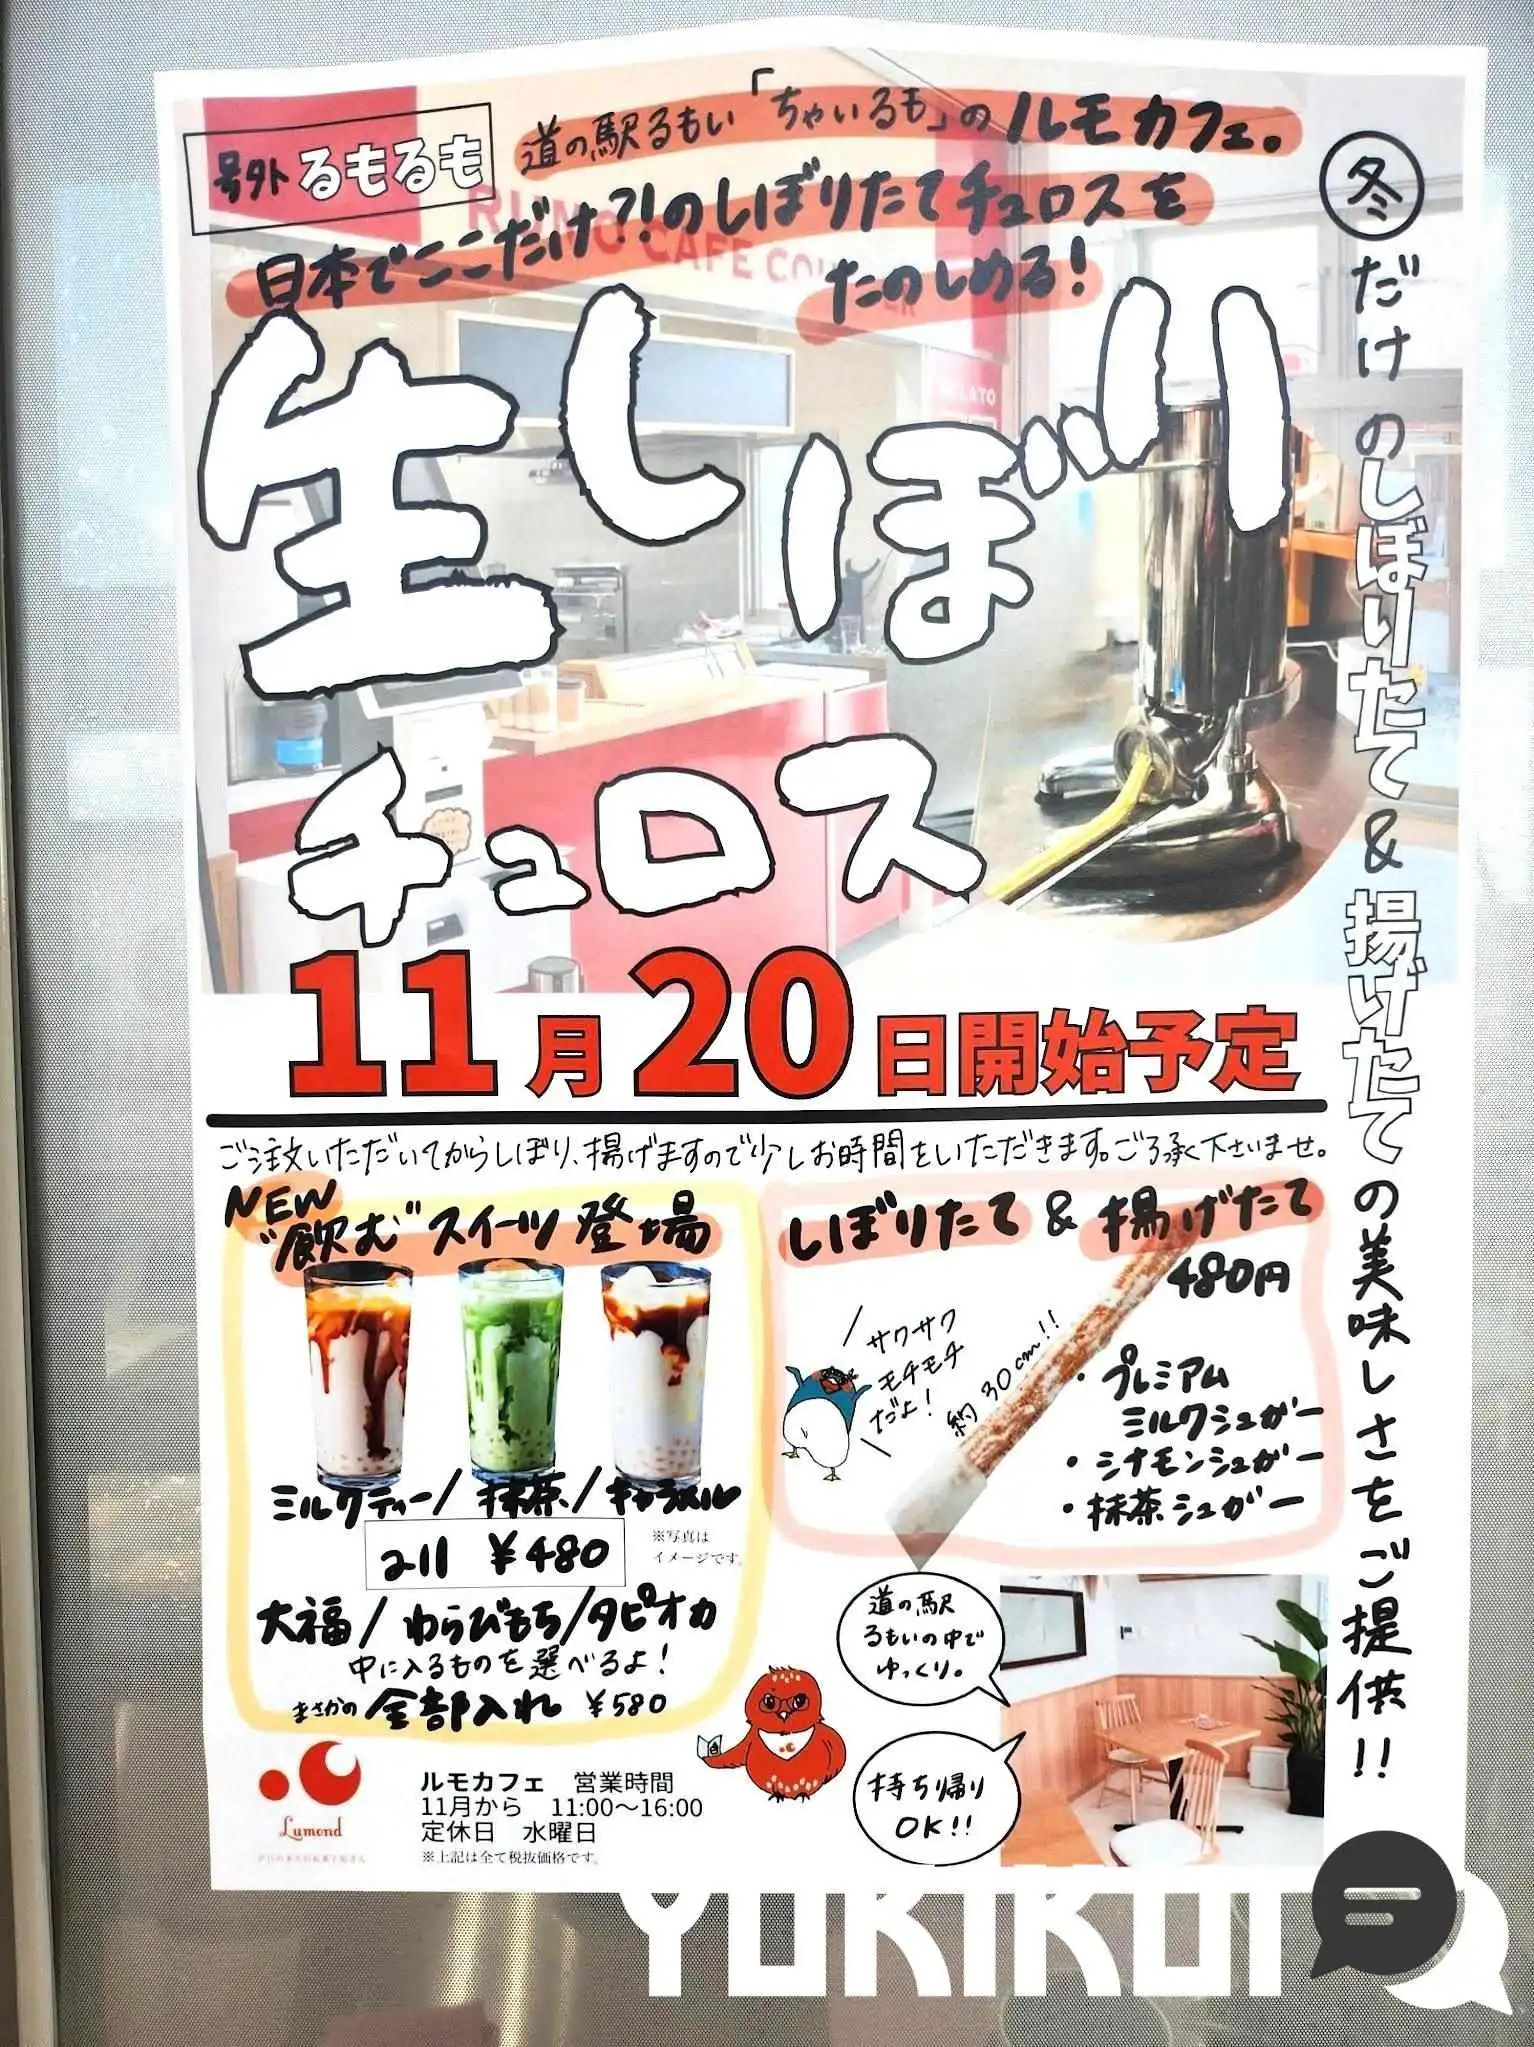 号外 るもるも
道の駅るもい「ちゃいるも」のルモカフェ。
日本でここだけ?!のしぼりたてチュロスを
たのしめる!
RUMO CAFE
冬だけのしぼりたて&揚げたての美味しさをご提供!!
生しぼり
チュロス
11月20日開始予定
ご注文いただいてからしぼり、揚げますので少しお時間をいただきます。ご了承下さいませ。
NEW
"飲む"スイーツ登場
ミルクティー/抹茶/キャラメル
¥480
※写真は
イメージです。
大福/わらびもち/タピオカ
中に入るものを選べるよ!
まさかの全部入れ ¥580
しぼりたて&揚げたて
480円
サクサク
モチモチ
だよ!
約30cm!!
・プレミアム
ミルクシュガー
・シナモンシュガー
・抹茶シュガー
道の駅
るもいの中で
ゆっくり。
持ち帰り
OK!!
Lumond
ルモカフェ 営業時間
11月から 11:00〜16:00
定休日 水曜日
※上記は全て税抜価格です。